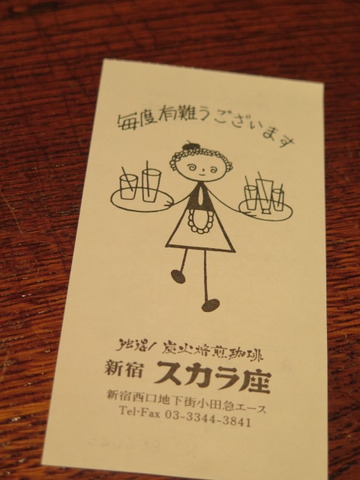 毎度有難うございます
強追! 炭火焙煎珈琲
新宿 スカラ座
新宿西口地下街小田急エース
Tel·Fax 03-3344-3841